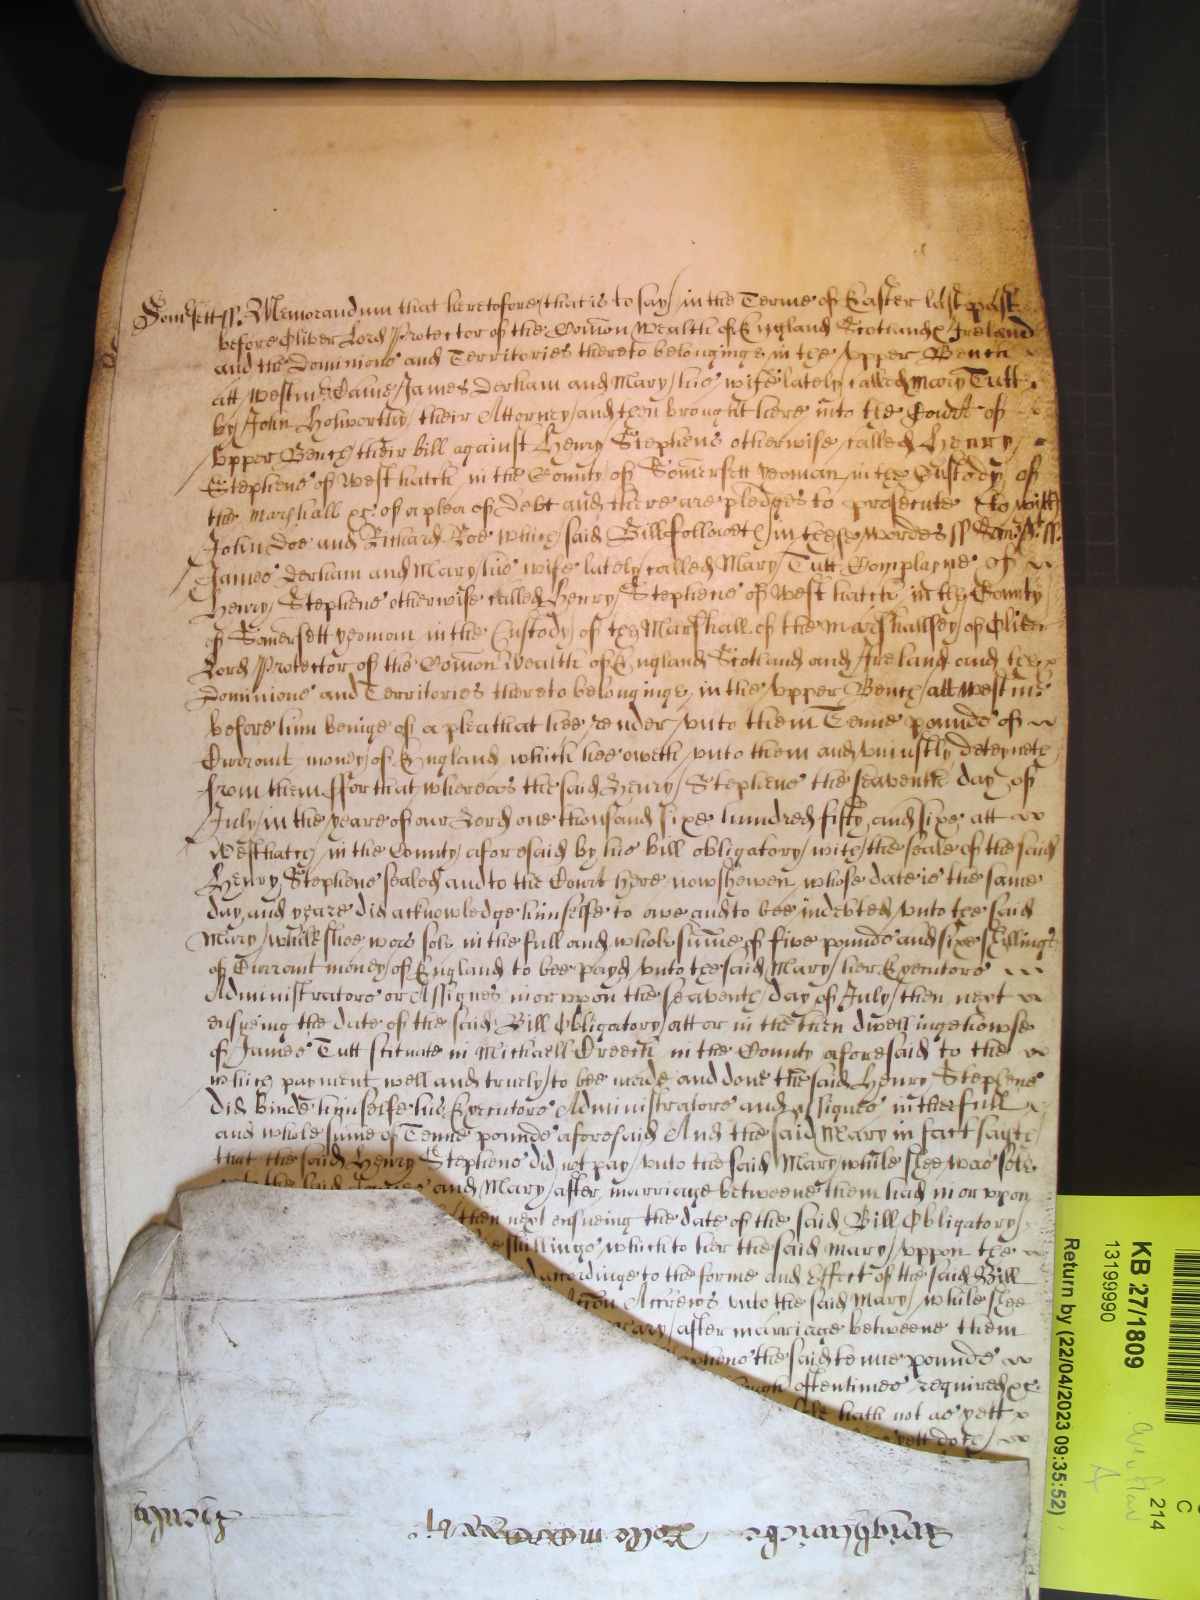 Somersett ss. Memorandum that heretofore that is to say in the Terme of Easter last past
before Oliver Lord Protector of the Comon Wealth of England Scotland & Ireland
and the Dominions and Territories thereto belonginge in the upper Bench
att Westm Came James Derham and Mary his wife lately called Mary Tutt
by John Holworthy their Attorney and then brought here into the Court of
upper Bench their bill against Henry Stephens otherwise called Henry
Stephens of West hatch in the County of Somersett yeoman in the Custody of
the Marshall &c. of a plea of Debt and there are pledges to prosecute to witt
John Doe and Richard Roe which said Bill followeth in these wordes ss Som ss.
James Derham and Mary his wife lately called Mary Tutt Complayne of
Henry Stephens otherwise called Henry Stephens of West hatch in the County
of Somersett yeoman in the Custody of the Marshall of the Marshallsey of Oliver
Lord Protector of the Comon Wealth of England Scotland and Ireland and the
Dominions and Territories thereto belonginge in the upper Bench att Westm
before him beinge of a plea that hee render unto them Tenne pounds of
Currant money of England which hee oweth unto them and uniustly deteyneth
from them ffor that whereas the said Henry Stephens the seaventh day of
July in the yeare of our Lord one thousand sixe hundred fifty and sixe att
Westhatch in the County aforesaid by his bill obligatory with the seale of the said
Henry Stephens sealed and to the Court here now shewen whose date is the same
day and yeare did acknowledge himselfe to owe and to bee indebted unto the said
Mary while shee was sole in the full and whole sume of five pounds and sixe shillings
of Currant money of England to bee payd unto the said Mary her Executors
Administrators or Assignes in or upon the seaventh day of July then next
ensueing the date of the said Bill Obligatory att or in the then dwellinge howse
of James Tutt scituate in Michaell Creech in the County aforesaid to the
which payment well and truely to bee made and done the said Henry Stephens
did binde himselfe his Executors Administrators and Assignes in the full
and whole sume of Tenne pounds aforesaid And the said Mary in fact sayth
that the said Henry Stephens did not pay unto the said Mary while shee was sole
the said James and Mary after marriage betweene them had in or upon
then next ensueing the date of the said Bill Obligatory
shillings which to her the said Mary uppon the
accordinge to the forme and Effect of the said Bill
Accrews unto the said Mary while shee
Mary after marriage betweene them
Stephens the said tenne pounds
oftentimes required &c.
hath not as yett
yett doth
KB 27/1809
13199990
Return by (22/04/2023 09:35:52)
214
C
A